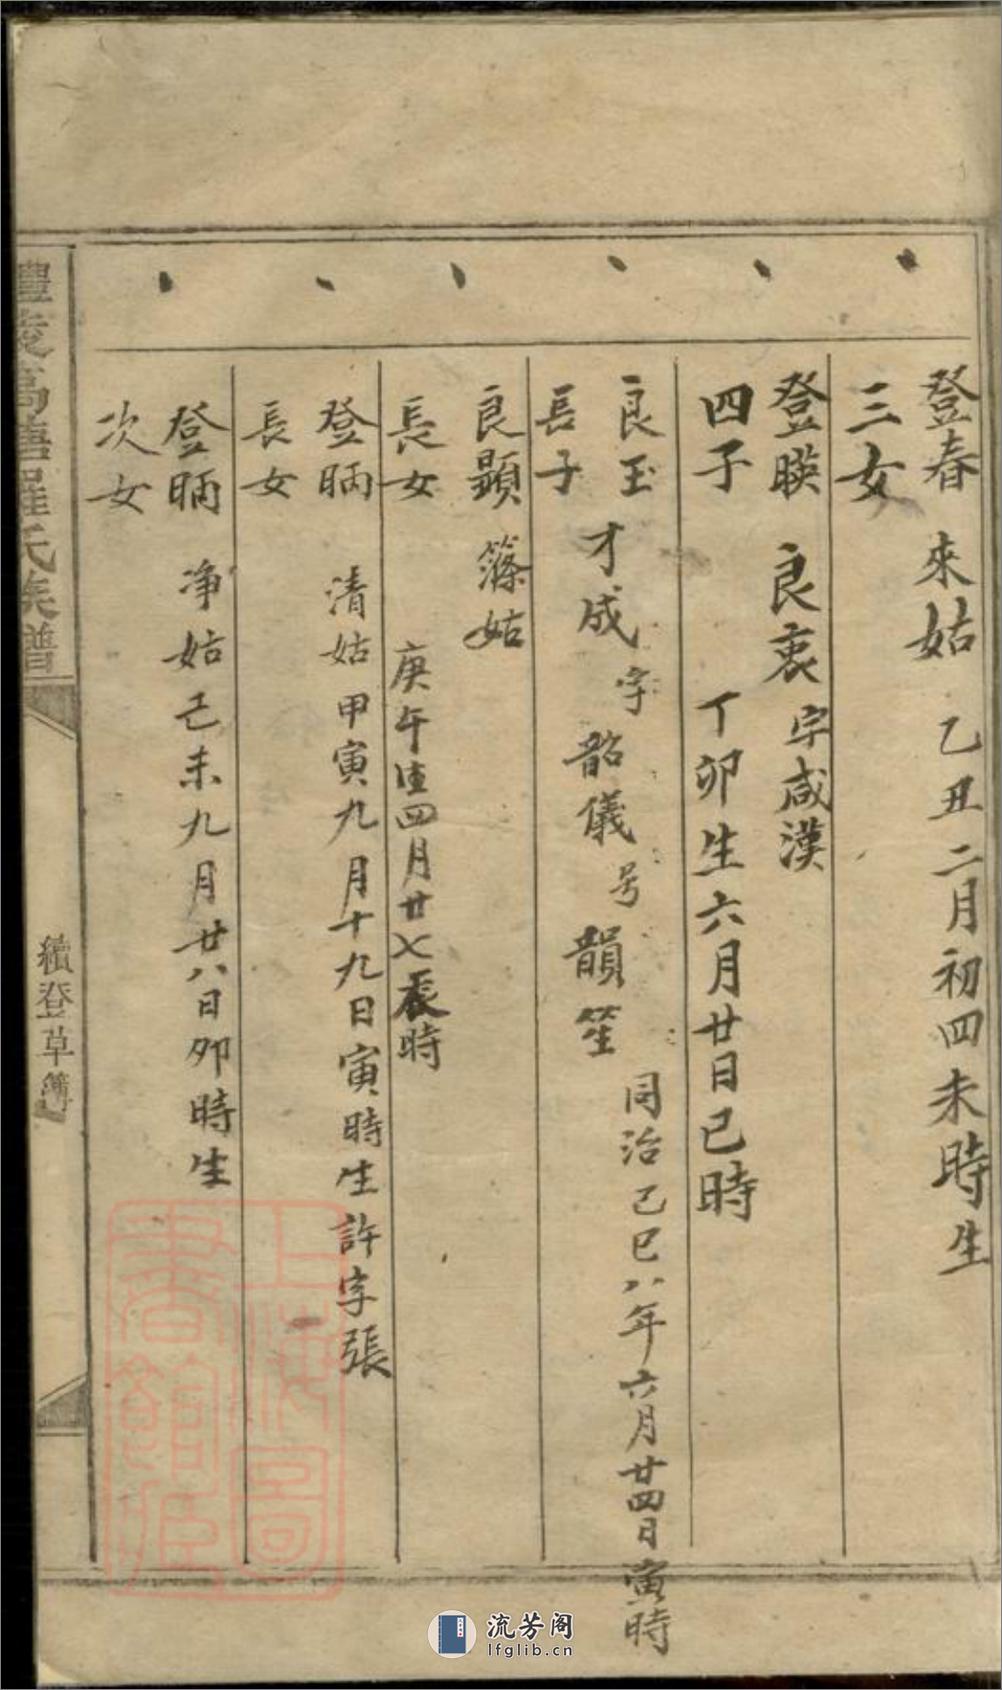 登春
三女
來姑 乙丑二月初四未時生
登暎
四子
良衷字咸漢
丁卯生六月廿日巳時
良玉
長子
才成字韶儀号韻笙
同治己巳八年六月廿四日寅時
良顯
長女
篠姑
庚午生四月廿七辰時
登昞
長女
清姑甲寅九月十九日寅時生許字張
登昞
次女
净姑己未九月廿八日卯時生
豐
高唐羅氏族譜
續登草簿
上海圖
書館
流芳阁
lfglib.cn